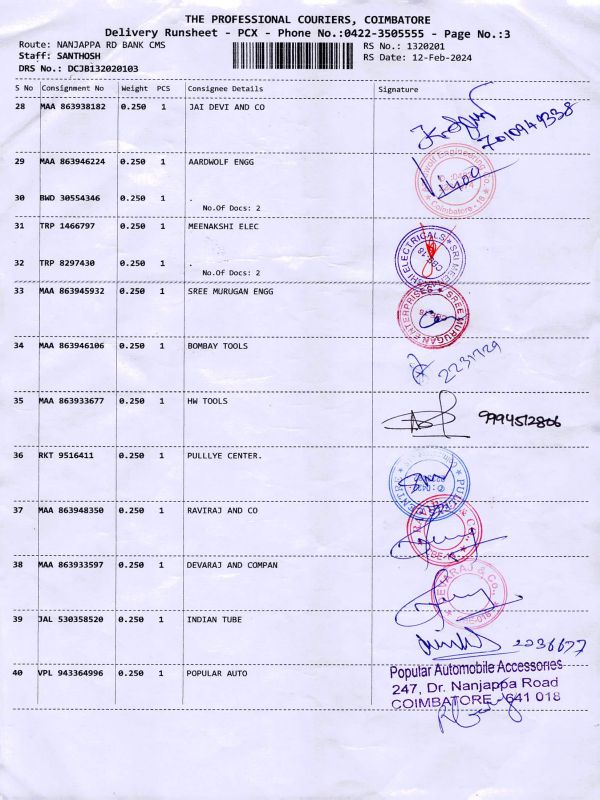 THE PROFESSIONAL COURIERS, COIMBATORE
Delivery Runsheet - PCX - Phone No.:0422-3505555 - Page No.:3
Route: NANJAPPA RD BANK CMS RS No.: 1320201
Staff: SANTHOSH RS Date: 12-Feb-2024
DRS No.: DCJB132020103
S No Consignment No Weight PCS Consignee Details Signature
28 MAA 863938182 0.250 1 JAI DEVI AND CO
7010949338
29 MAA 863946224 0.250 1 AARDWOLF ENGG
Aardwolf Engineering Co. Coimbatore - 18
30 BWD 30554346 0.250 1 .
No.Of Docs: 2
31 TRP 1466797 1 MEENAKSHI ELEC
ELECTRICALS SRI
32 TRP 8297430 0.250 1 .
No.Of Docs: 2
33 MAA 863945932 0.250 1 SREE MURUGAN ENGG
SREE MURUGAN ENTERPRISES
34 MAA 863946106 0.250 1 BOMBAY TOOLS
2231729
35 MAA 863933677 0.250 1 HW TOOLS
9994512806
36 RKT 9516411 0.250 1 PULLLYE CENTER.
37 MAA 863948350 0.250 1 RAVIRAJ AND CO
38 MAA 863933597 0.250 1 DEVARAJ AND COMPAN
39 JAL 530358520 0.250 1 INDIAN TUBE
2236677
40 VPL 943364996 0.250 1 POPULAR AUTO
Popular Automobile Accessories
247, Dr. Nanjappa Road
COIMBATORE - 641 018